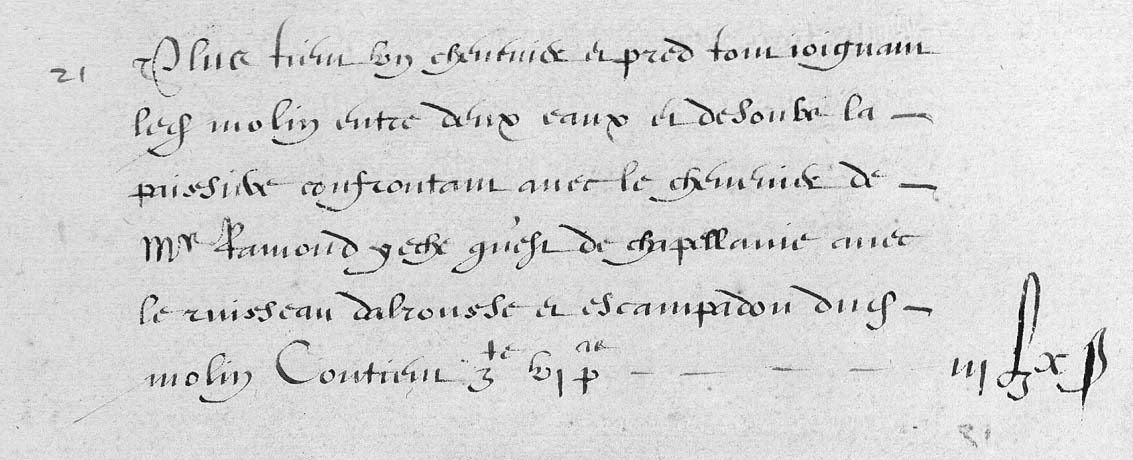 21 Plus tient ung cheneive et pred tout joignant
led molin entre deux eaux et desoubz la
paissive confrontant avec le cheneive de
Mre Ramond yeche qu'est de chapellanie avec
le ruisseau dalrousse et escampadou dud
molin Contient 3 te vi p
iii x